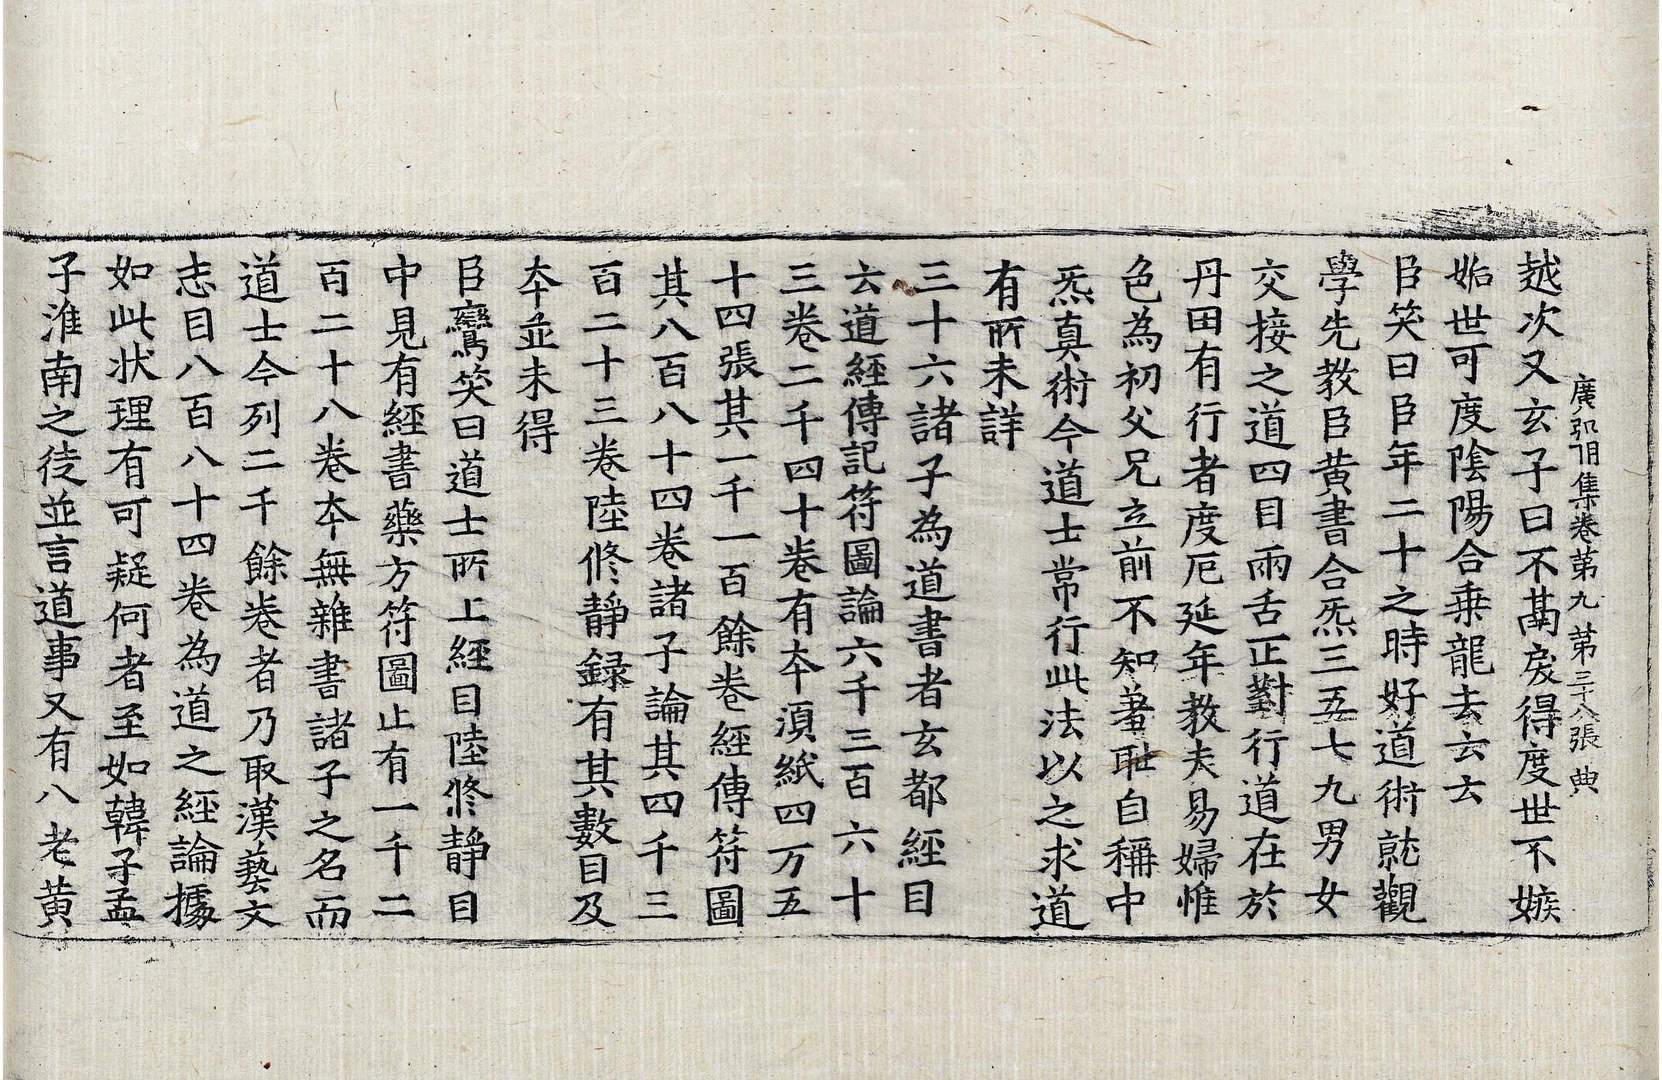 廣弘明集卷第九 第三十八張 典
越次又玄子曰不鬲戾得度世不嫉
妬世可度陰陽合乗龍去云云
臣笑曰臣年二十之時好道術就觀
學先教臣黄書合炁三五七九男女
交接之道四目兩舌正對行道在於
丹田有行者度厄延年教夫易婦惟
色為初父兄立前不知羞耻自稱中
炁真術今道士常行此法以之求道
有所未詳
三十六諸子為道書者玄都經目
云道經傳記符圖論六千三百六十
三卷二千四十卷有本須紙四万五
十四張其一千一百餘卷經傳符圖
其八百八十四卷諸子論其四千三
百二十三卷陸修靜録有其數目及
本並未得
臣鸞笑曰道士所上經目陸修靜目
中見有經書藥方符圖止有一千二
百二十八卷本無雜書諸子之名而
道士今列二千餘卷者乃取漢藝文
志目八百八十四卷為道之經論據
如此状理有可疑何者至如韓子孟
子淮南之徒並言道事又有八老黄